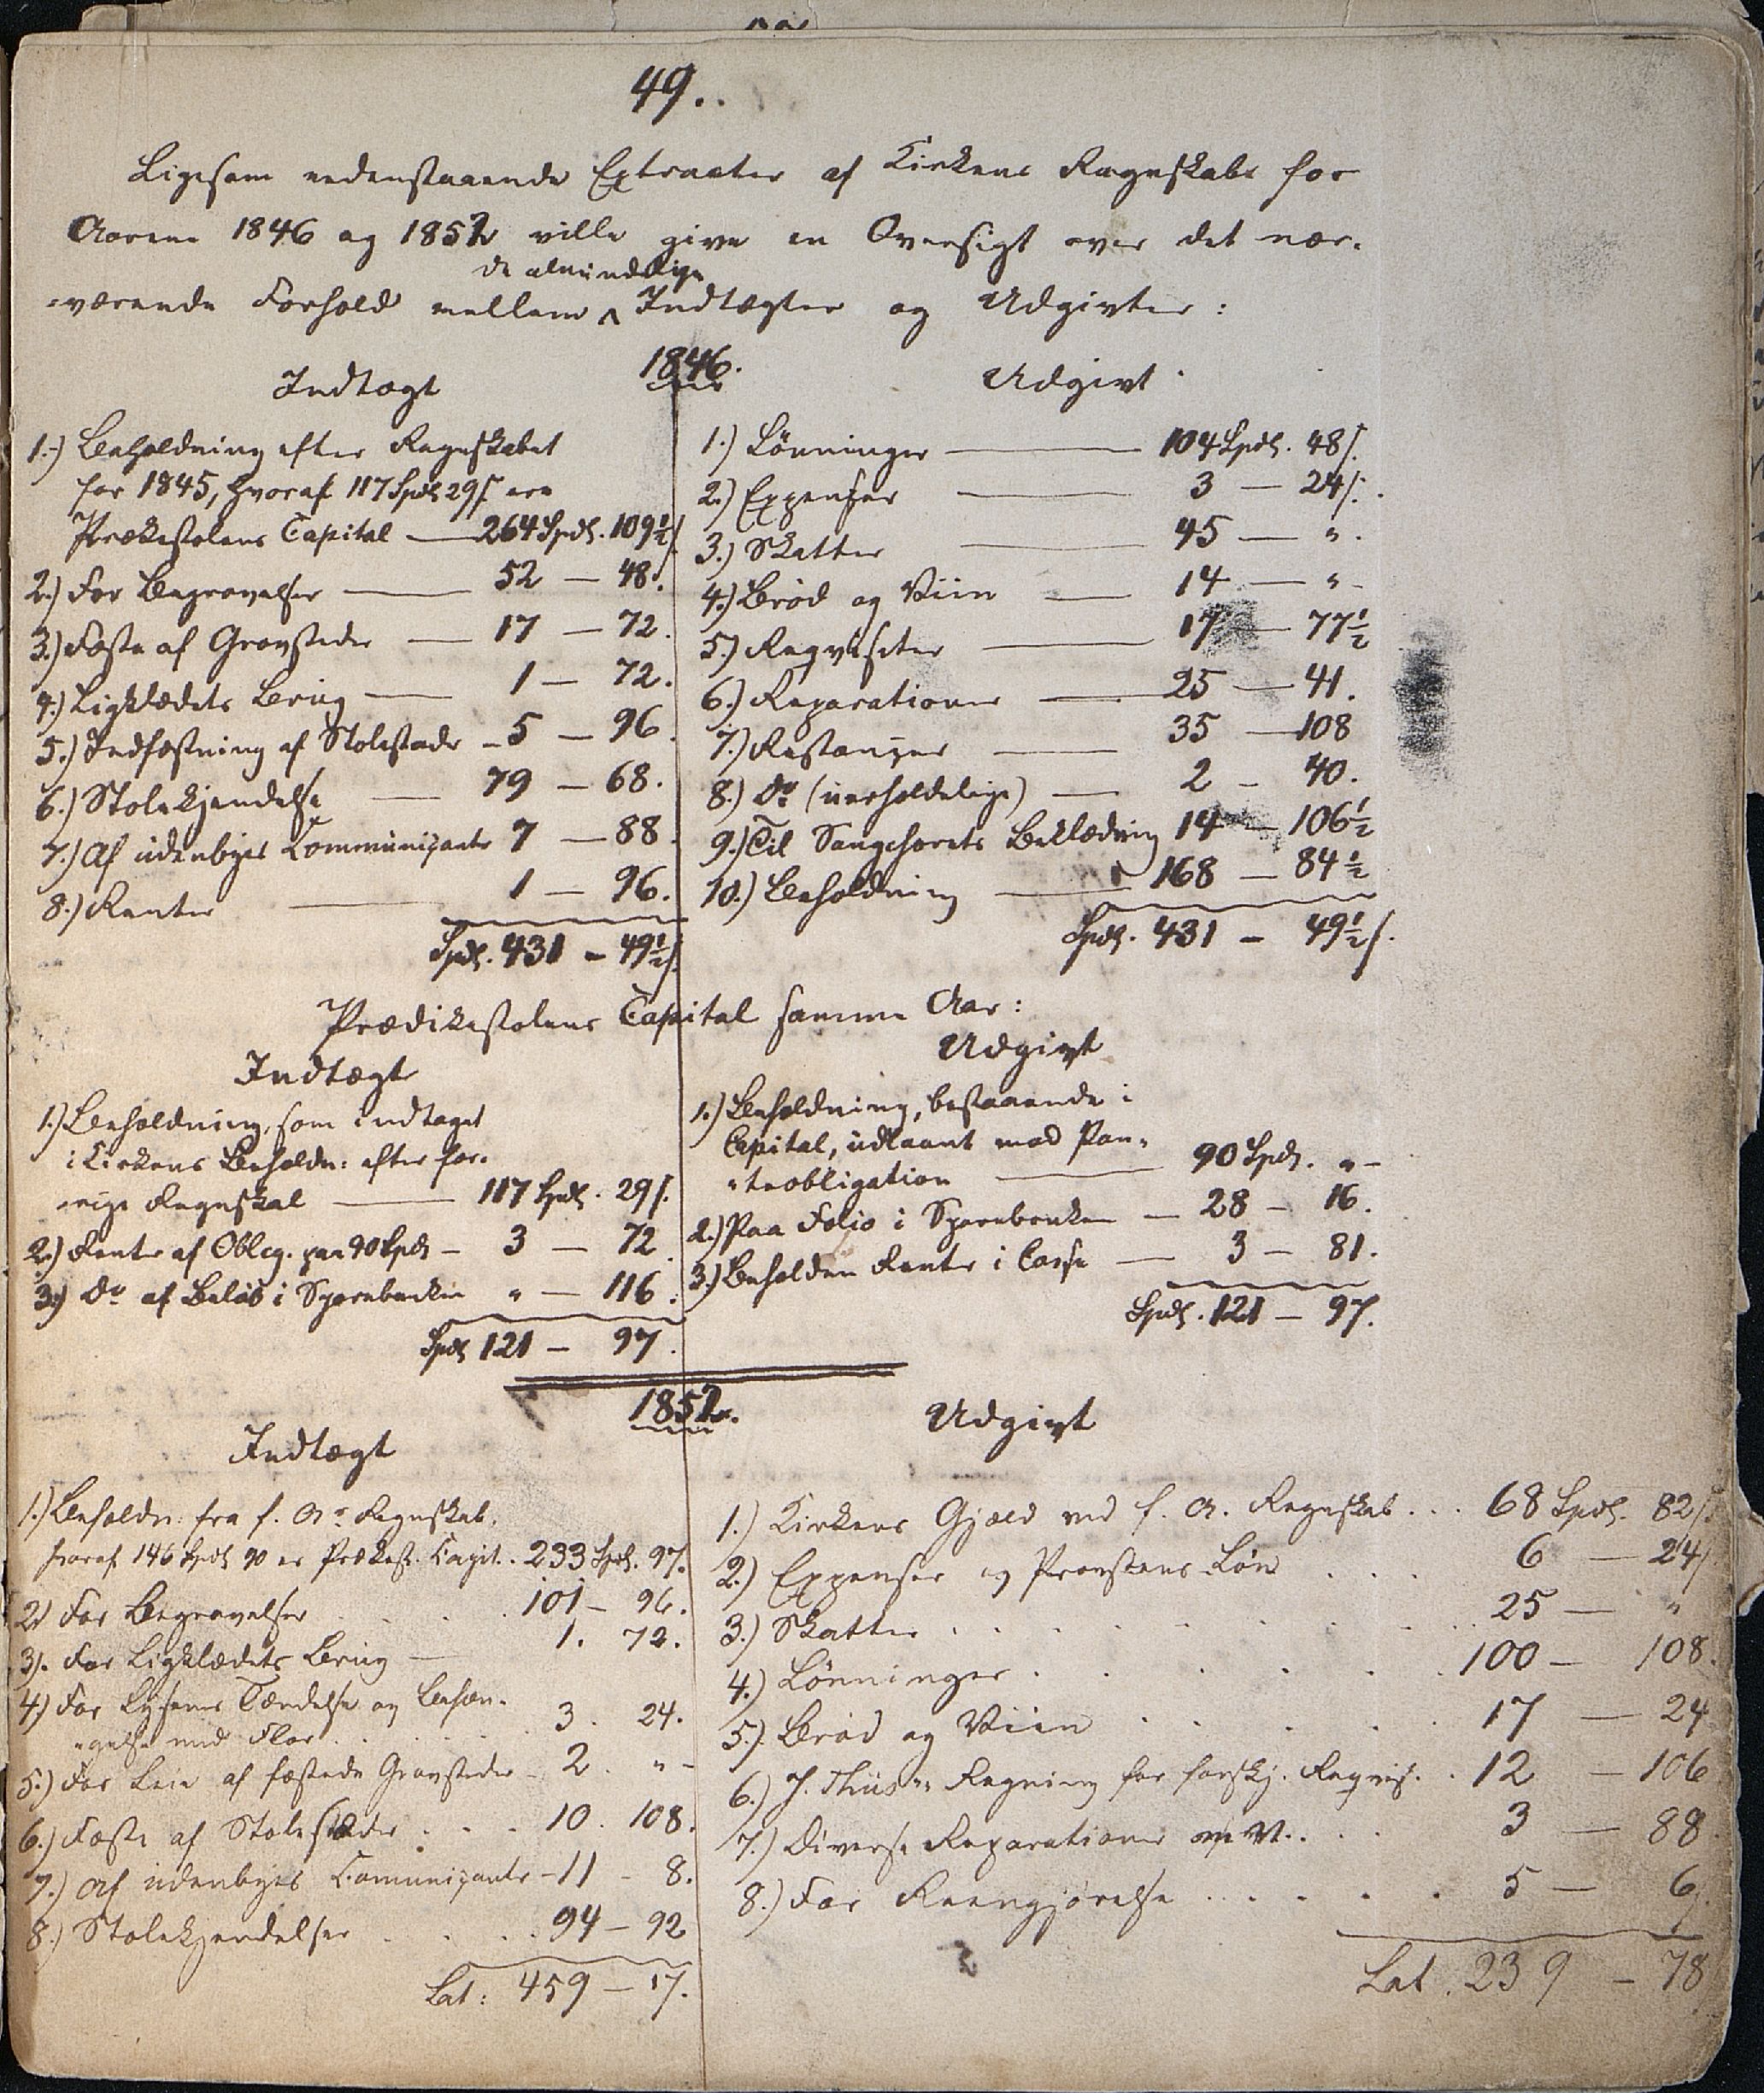 49.
Ligesom nedenstaaende Extracter af Kirkens Regnskabe for
Aarene 1846 og 1852 ville give en Oversigt over det nær-
værende Forhold mellem de almindelige Indtægter og Udgivter:
1846.
Indtægt
1.) Beholdning efter Regnskabet
for 1845, hvoraf 117 Spd. 29 s. ere
Prækestolens Capital — 264 Spd. 109½ s.
2.) For Begravelser — 52 — 48.
3.) Fæste af Gravsteder — 17 — 72.
4.) Ligklædets Brug — 1 — 72.
5.) Indfæstning af Stolestader — 5 — 96.
6.) Stolekjendelse — 79 — 68.
7.) Af udenbyes Communicanter 7 — 88.
8.) Renter — 1 — 96.
Spd. 431 — 49½ s.
Udgivt
1.) Lönninger — 104 Spd. 48 s.
2.) Expenser — 3 — 24 s.
3.) Skatter — 45 — "
4.) Bröd og Viin — 14 — "
5.) Reqvisiter — 17 — 77½
6.) Reparationer — 25 — 41.
7.) Restanzer — 35 — 108
8.) Do (uerholdelige) — 2 — 40.
9.) Til Sangchorets Beklædning 14 — 106½
10.) Beholdning — 168 — 84½
Spd. 431 — 49½ s.
Prædikestolens Capital samme Aar:
Indtægt
1.) Beholdning, som indtaget
i Kirkens Beholdn: efter for-
rige Regnskab — 117 Spd. 29 s.
2.) Rente af Oblig. paa 90 Spd — 3 — 72
3.) Do af Beløb i Sparebanken " — 116.
Spd 121 — 97.
Udgivt
1.) Beholdning, bestaaende i
Capital, udlaant mod Pan-
teobligation — 90 Spd. " —
2.) Paa Folio i Sparebanken — 28 — 16.
3.) Beholden Rente i Casse — 3 — 81.
Spd. 121 — 97.
1852.
Indtægt
1.) Beholdn: fra f. Ars Regnskab,
hvoraf 146 Spd 90 er Prækest. Capit.. 233 Spd. 97.
2) For Begravelser . . . 101 — 96.
3). For Ligklædets Brug — 1. 72.
4) For Lysenes Tændelse og Behæn-
gelse med Flor . . . 3. 24.
5.) For Leie af fæstede Gravsteder — 2. " —
6.) Fæste af Stolestader . . . 10. 108.
7.) Af udenbyes Comunicanter — 11 — 8.
8.) Stolekjendelser . . . 94 — 92
Lat: 459 — 17.
Udgivt
1.) Kirkens Gjæld ved f. A. Regnskab . . . 68 Spd. 82 s.
2.) Expenser og Provstens Løn . . . 6 — 24 s.
3.) Skatter . . . 25 — "
4.) Lönninger . . . 100 — 108.
5.) Brød og Viin . . . 17 — 24
6.) Regning for forskj. Reqvis. . 12 — 106
7.) Diverse Reparationer . . . 3 — 88.
8.) For Reengjörelse . . . 5 — 6.
Lat. 239 — 78